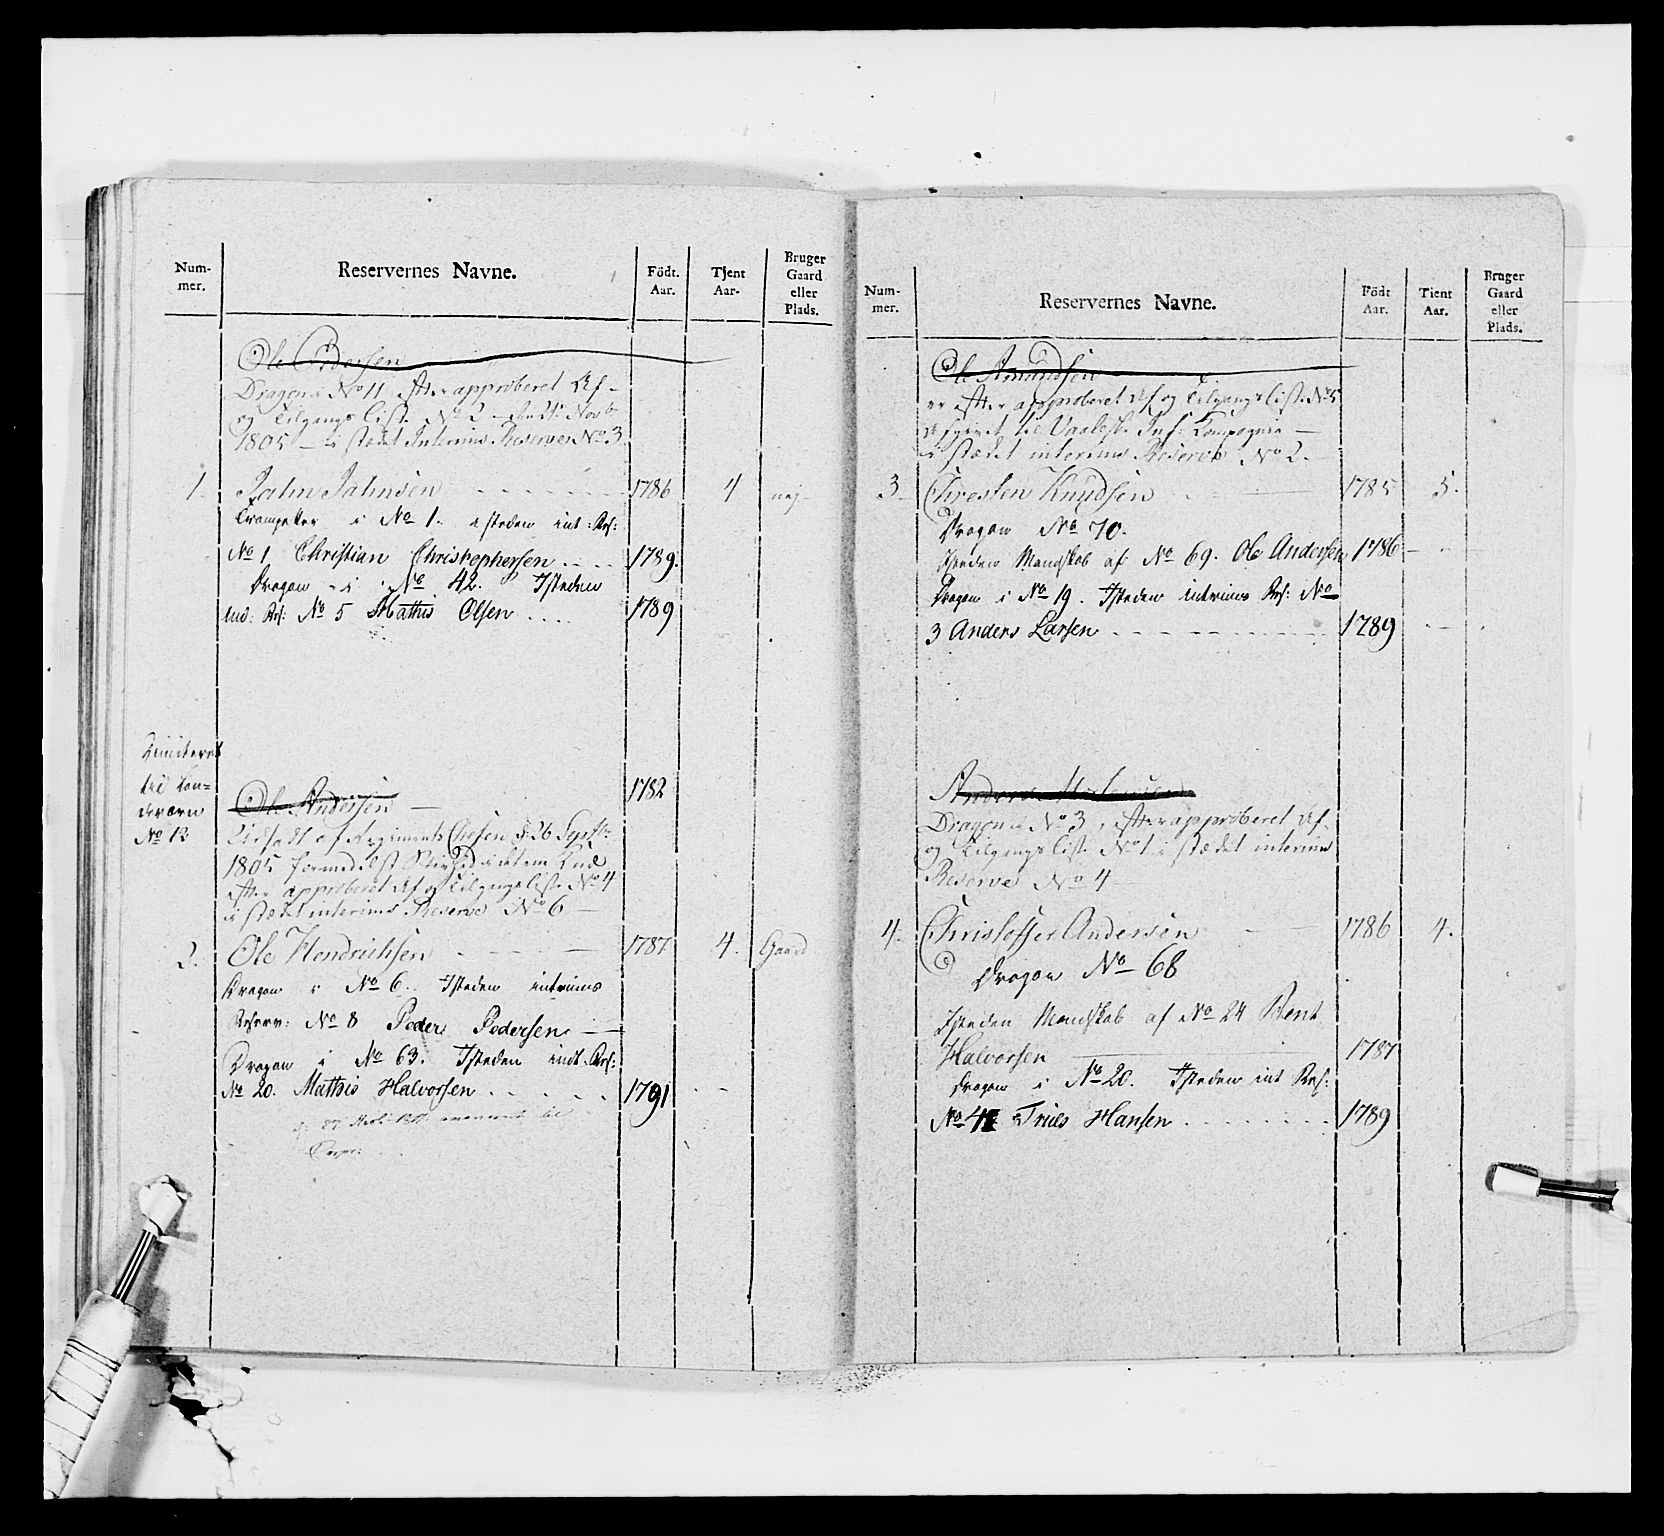 Num-
mer.
Reservernes Navne.
Födt.
Aar.
Tjent
Aar.
Bruger
Gaard
eller
Plads.
Ole Pedersen
Dragon i No 11 efter approberet Af-
og Tilgangs List No 2 21 Novbr
1805 - i stædet Interims Reserve No 3
1. Jahn Jahnsen 1786 4 nej
Trompetter i No 1. isteden int: Res:
No 1 Christian Christophersen 1789.
Dragon i No 42. Isteden
ind: Res: No 5 Mathis Olsen 1789
til Lan-
deværn
No 12
Ole Andersen 1782
af Regiments Chefen d: 26 Septbr
1805 formedelst Knæ
efter approberet Af og Tilgangsliste No 4
i stædet interims Reserve No 6
2. Ole Hendrichsen 1787 4. Gaard
Dragon i No 6. Isteden intrims
Reserv: No 8 Peder Pedersen
Dragon i No 63. Isteden indt. Res:
No 20. Mathis Halvorsen 1791
Num-
mer.
Reservernes Navne.
Födt
Aar.
Tient
Aar.
Bruger
Gaard
eller
Plads.
Ole Amundsen
er efter approberet Af og Tilgangs List No 5
til Inf: Compagnie
i stædet interims Reserve No 2.
3. Christen Knudsen 1785 5.
Dragon No 70.
Isteden Mandskab af No 69. Ole Andersen 1786
Dragon i No 19. Isteden intrims Res: No
3 Anders Larsen 1789
Anders
Dragon i No 3, efter approberet Af-
og Tilgangs List No 1 i stædet interims
Reserve No 4
4. Christoffer Andersen 1786 4.
Dragon No 68
Isteden Mandskab af No 24 Bent
Halvorsen 1787
Dragon i No 20. Isteden int Res:
No 4 Hansen 1789